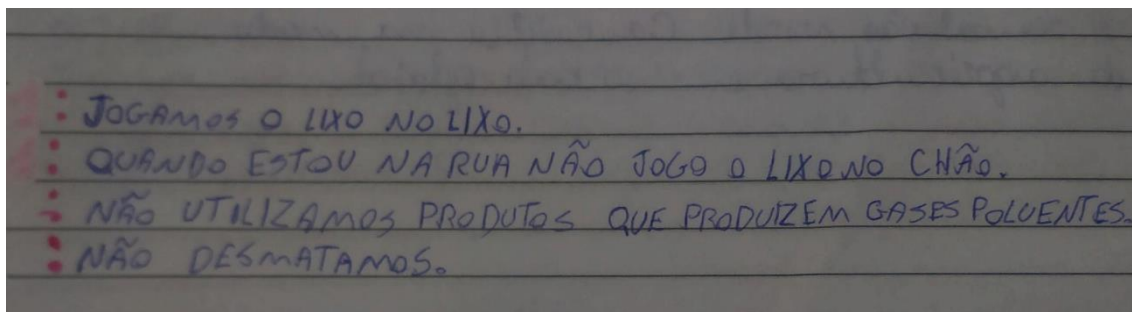 JOGAMOS O LIXO NO LIXO.
QUANDO ESTOU NA RUA NÃO JOGO O LIXO NO CHÃO.
NÃO UTILIZAMOS PRODUTOS QUE PRODUZEM GASES POLUENTES.
NÃO DESMATAMOS.